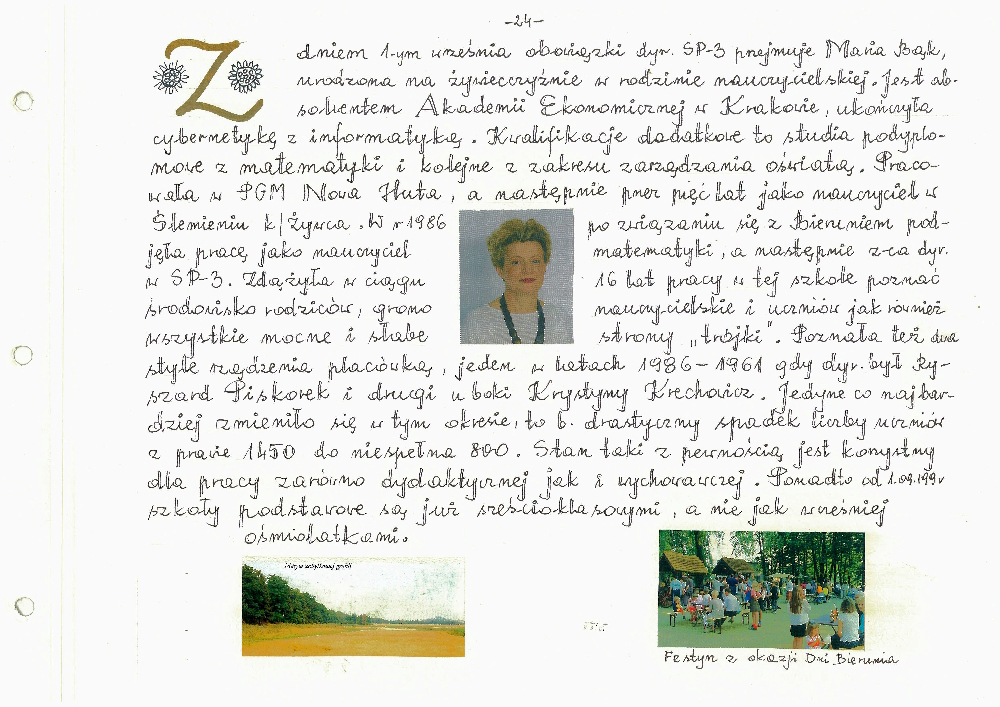 -24-
Z dniem 1-ym września obowiązki dyr. SP-3 przejmuje Maria Bąk,
urodzona na żywiecczyźnie w rodzinie nauczycielskiej. Jest ab-
solwentem Akademii Ekonomicznej w Krakowie, ukończyła
cybernetykę z informatyką. Kwalifikacje dodatkowe to studia podyplo-
mowe z matematyki i kolejne z zakresu zarządzania oświatą. Praco-
wała w PGM Nowa Huta, a następnie przez pięć lat jako nauczyciel w
Ślemieniu k/Żywca. W r 1986 po związaniu się z Bieruniem pod-
jęła pracę jako nauczyciel matematyki, a następnie z-ca dyr.
w SP-3. Zdążyła w ciągu 16 lat pracy w tej szkole poznać
środowisko rodziców, grono nauczycielskie i uczniów jak również
wszystkie mocne i słabe strony „trójki”. Poznała też dwa
style rządzenia placówką, jeden w latach 1986-1961 gdy dyr. był Ry-
szard Piskorek i drugi u boki Krystyny Krechowicz. Jedyne co najbar-
dziej zmieniło się w tym okresie, to b. drastyczny spadek liczby uczniów
z prawie 1450 do niespełna 800. Stan taki z pewnością jest korzystny
dla pracy zarówno dydaktycznej jak i wychowawczej. Ponadto od 1.09.199r
szkoły podstawowe są już sześcioklasowymi, a nie jak wcześniej
ośmiolatkami.
Festyn z okazji Dni Bierunia